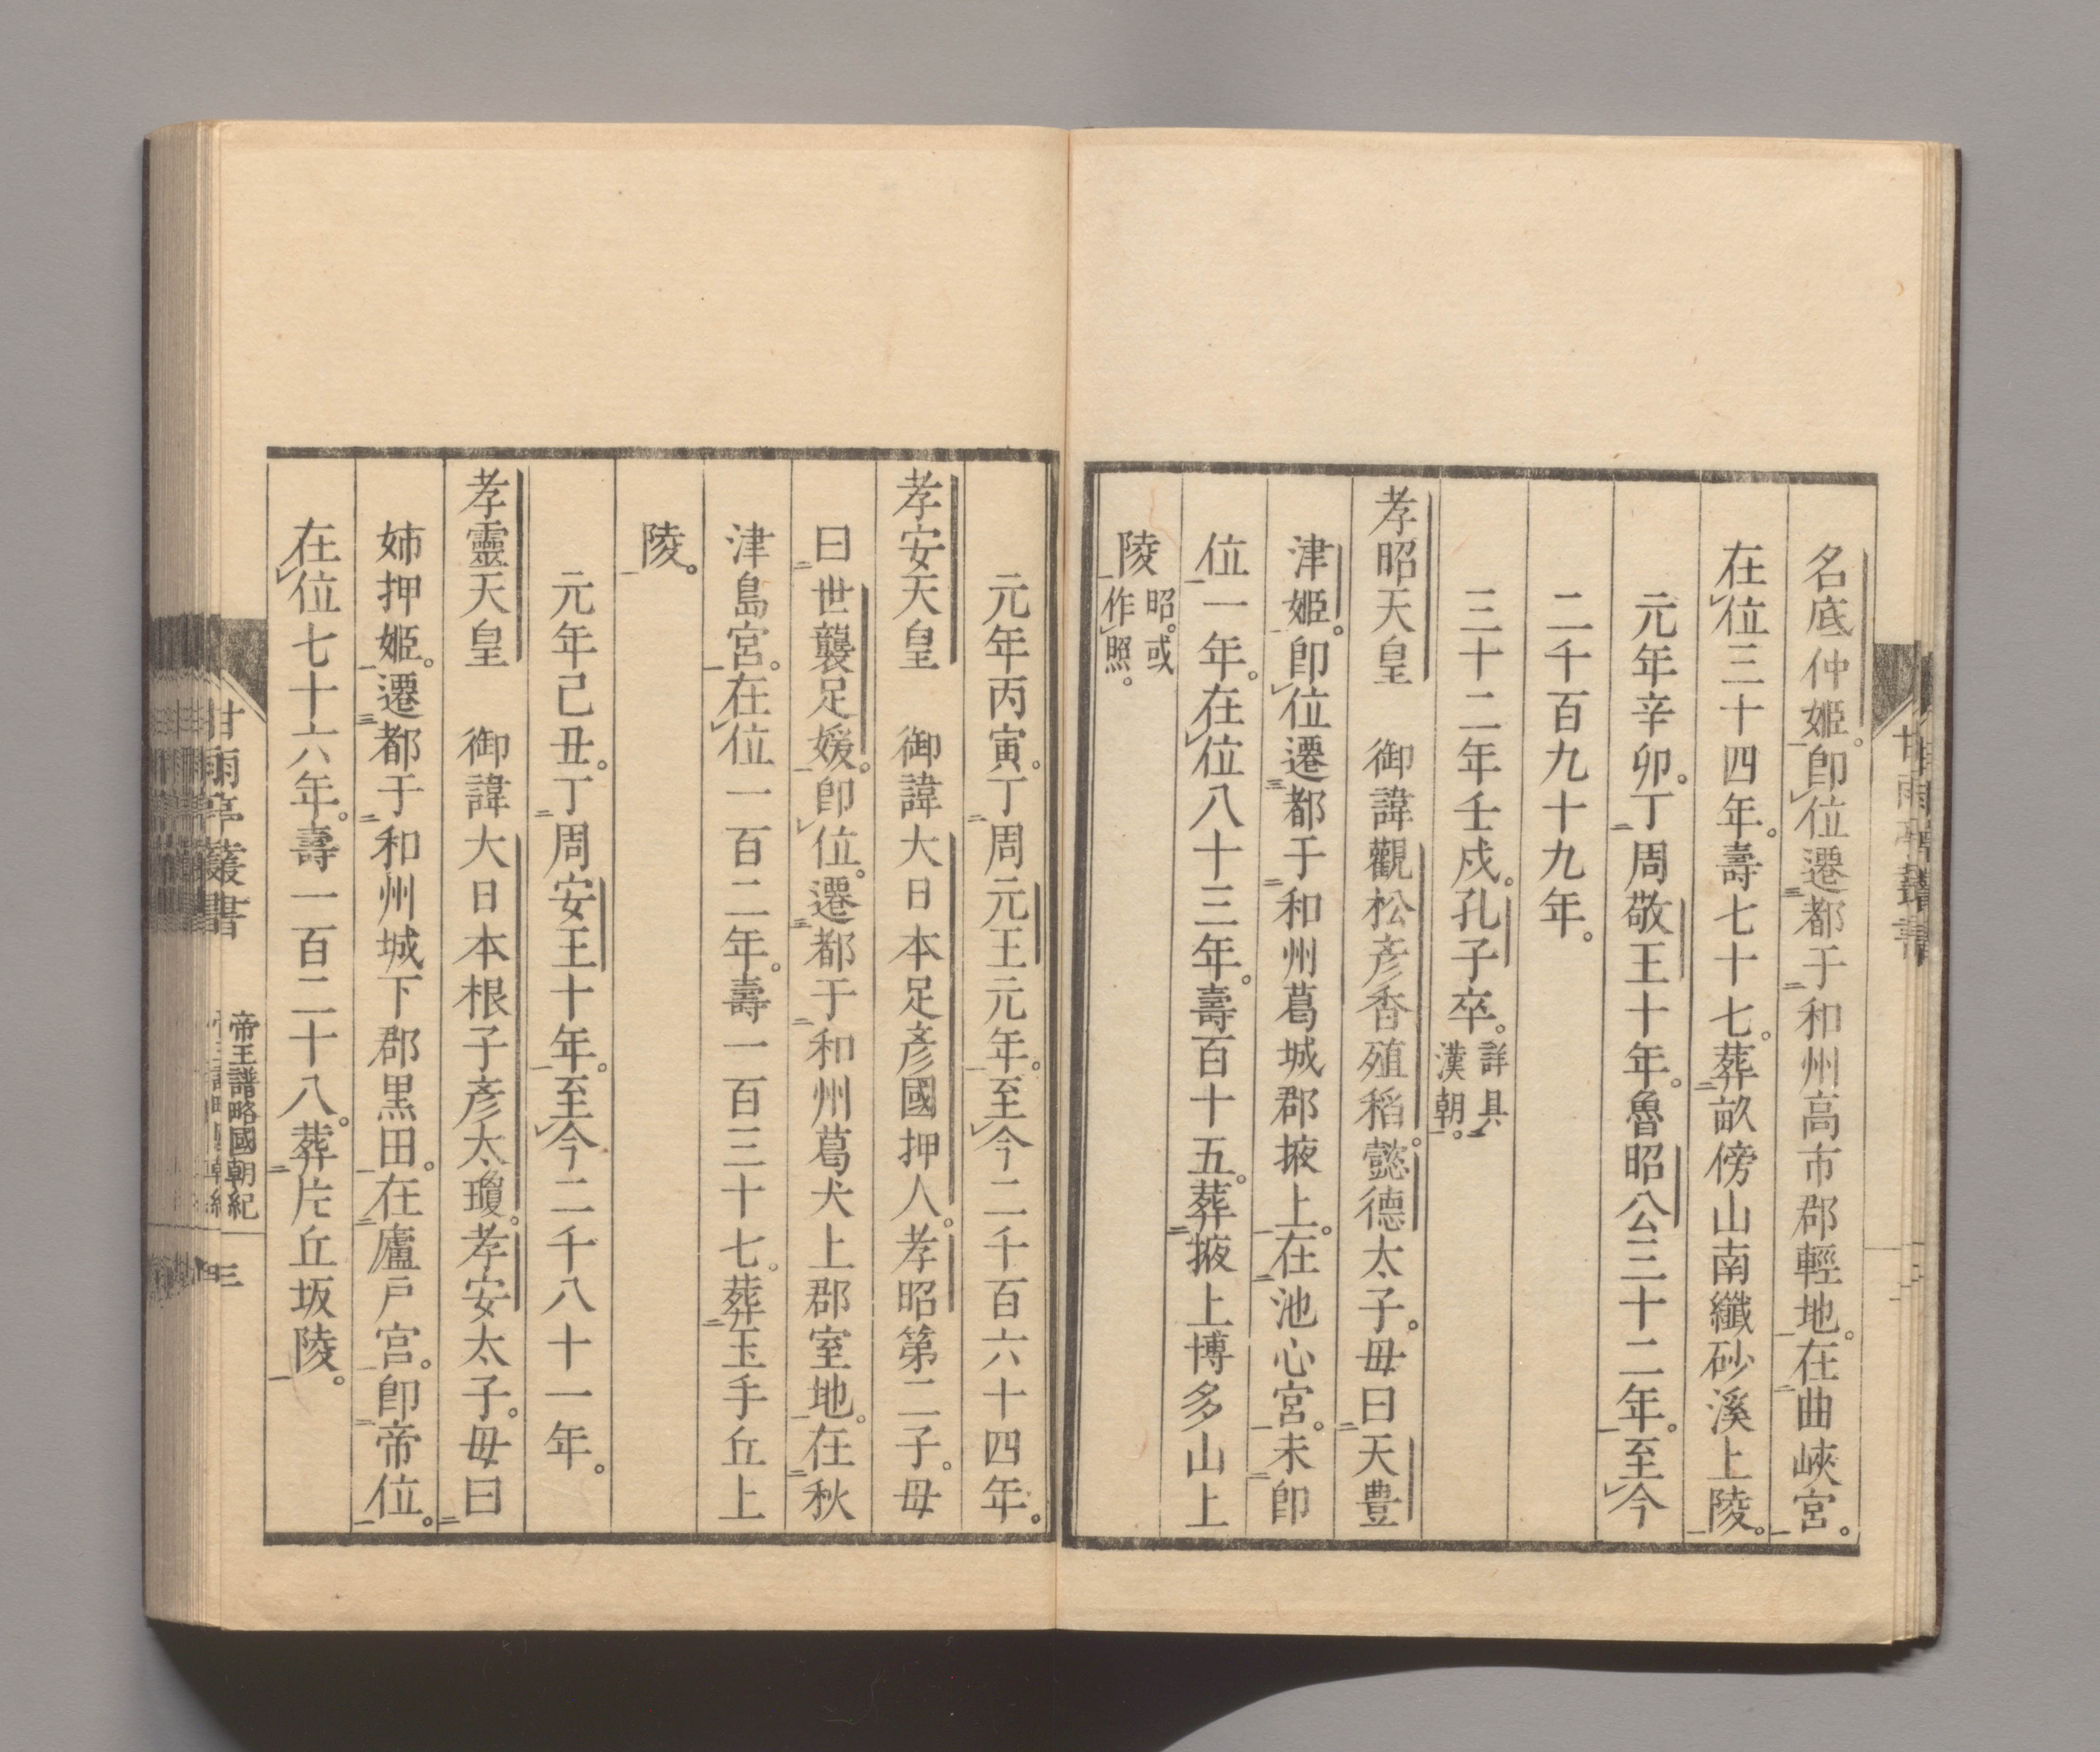 名底仲姬。卽位遷都于和州高市郡輕地。在曲峽宮。
在位三十四年。壽七十七。葬畝傍山南纖砂溪上陵。
元年辛卯。丁周敬王十年。魯昭公三十二年。至今
二千百九十九年。
三十二年壬戌。孔子卒。詳具
漢朝。
孝昭天皇　御諱觀松彥香殖稻。懿德太子。毋曰天豊
津姬。卽位遷都于和州葛城郡掖上。在池心宮。未卽
位一年。在位八十三年。壽百十五。葬掖上博多山上
陵昭。或
作照。
元年丙寅。丁周元王元年。至今二千百六十四年。
孝安天皇　御諱大日本足彥國押人。孝昭第二子。毋
曰世襲足媛。卽位。遷都于和州葛犬上郡室地。在秋
津島宮。在位一百二年。壽一百三十七。葬玉手丘上
陵。
元年己丑。丁周安王十年。至今二千八十一年。
孝靈天皇　御諱大日本根子彥太瓊。孝安太子。毋曰
姉押姬。遷都于和州城下郡黒田。在廬戶宮。卽帝位。
在位七十六年。壽一百二十八。葬片丘坂陵。
甘雨亭叢書
帝王譜略國朝紀
三